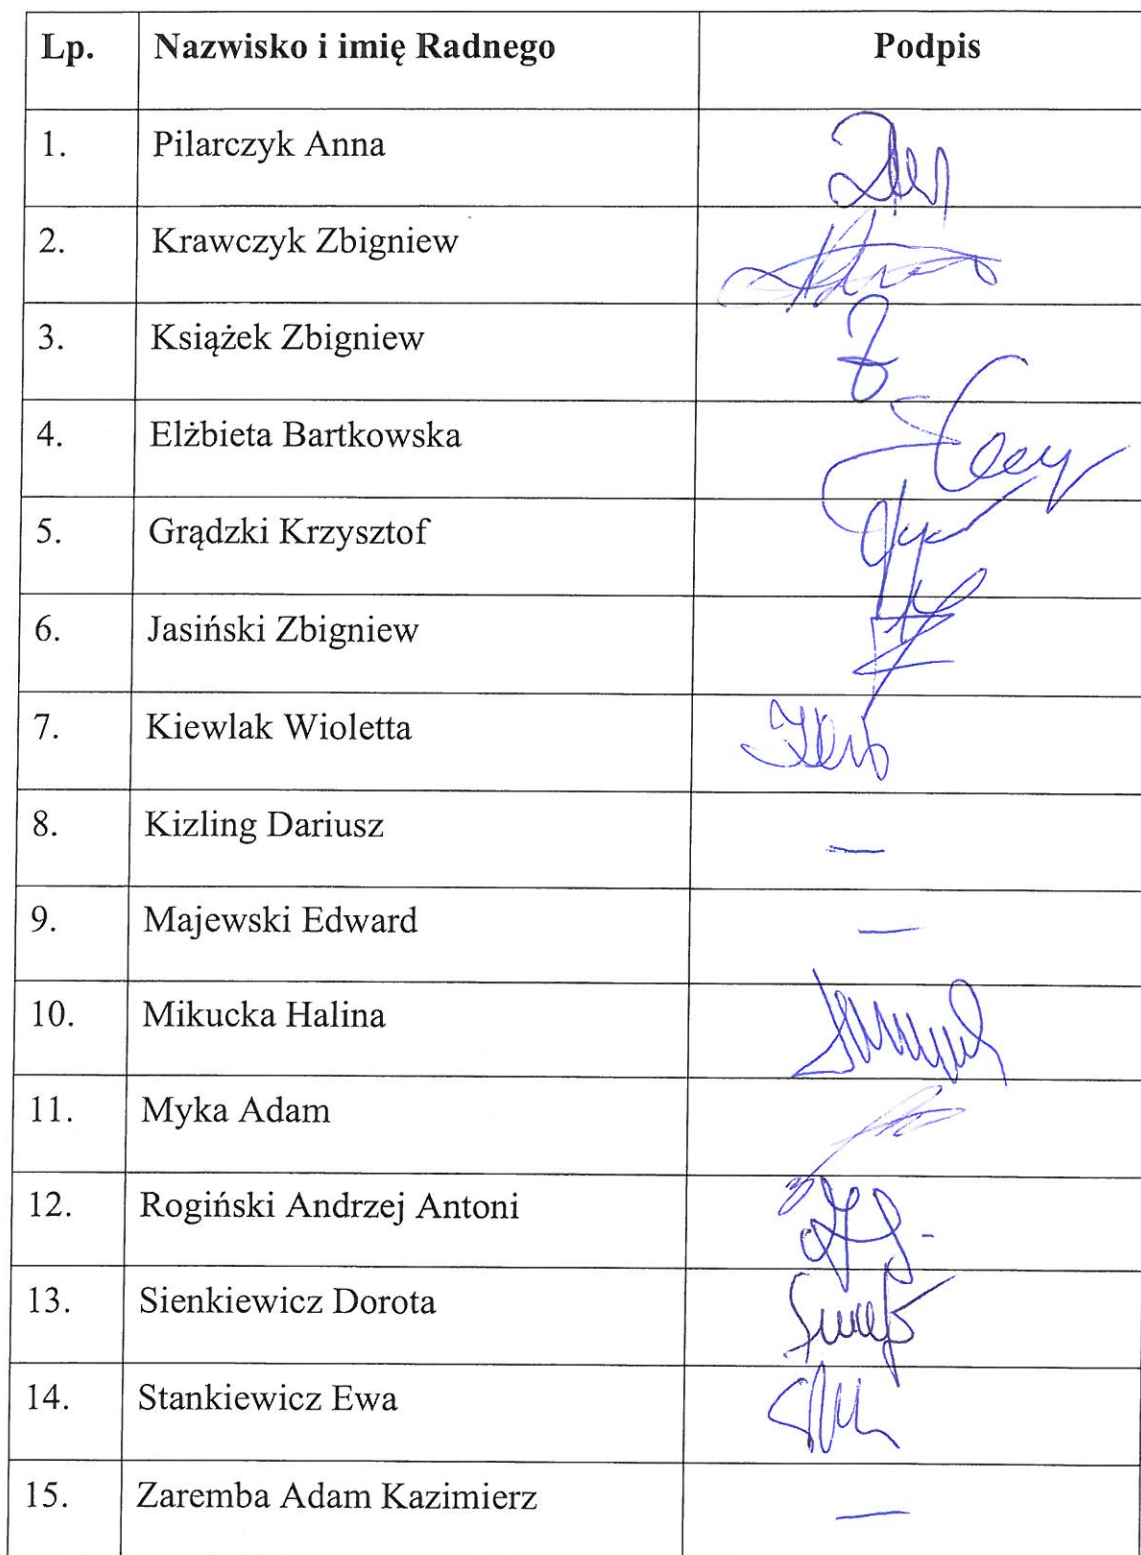 Lp. Nazwisko i imię Radnego Podpis
1. Pilarczyk Anna
2. Krawczyk Zbigniew
3. Książek Zbigniew
4. Elżbieta Bartkowska
5. Grądzki Krzysztof
6. Jasiński Zbigniew
7. Kiewlak Wioletta
8. Kizling Dariusz —
9. Majewski Edward —
10. Mikucka Halina
11. Myka Adam
12. Rogiński Andrzej Antoni
13. Sienkiewicz Dorota
14. Stankiewicz Ewa
15. Zaremba Adam Kazimierz —